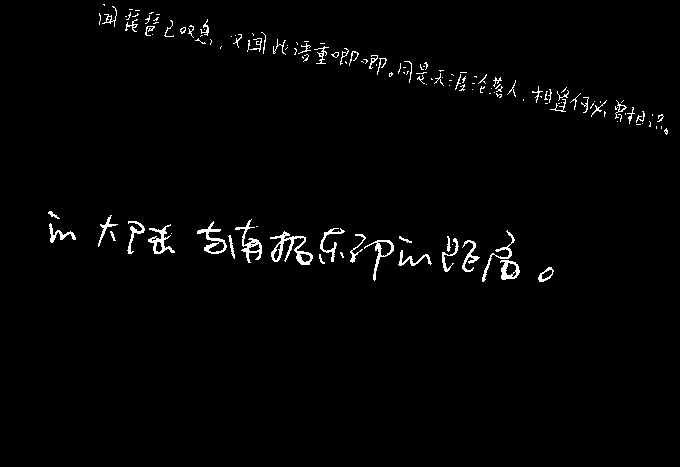 闻琵琶已叹息，又闻此语重唧唧。同是天涯沦落人，相逢何必曾相识。
的大陆与南极东部的距离。